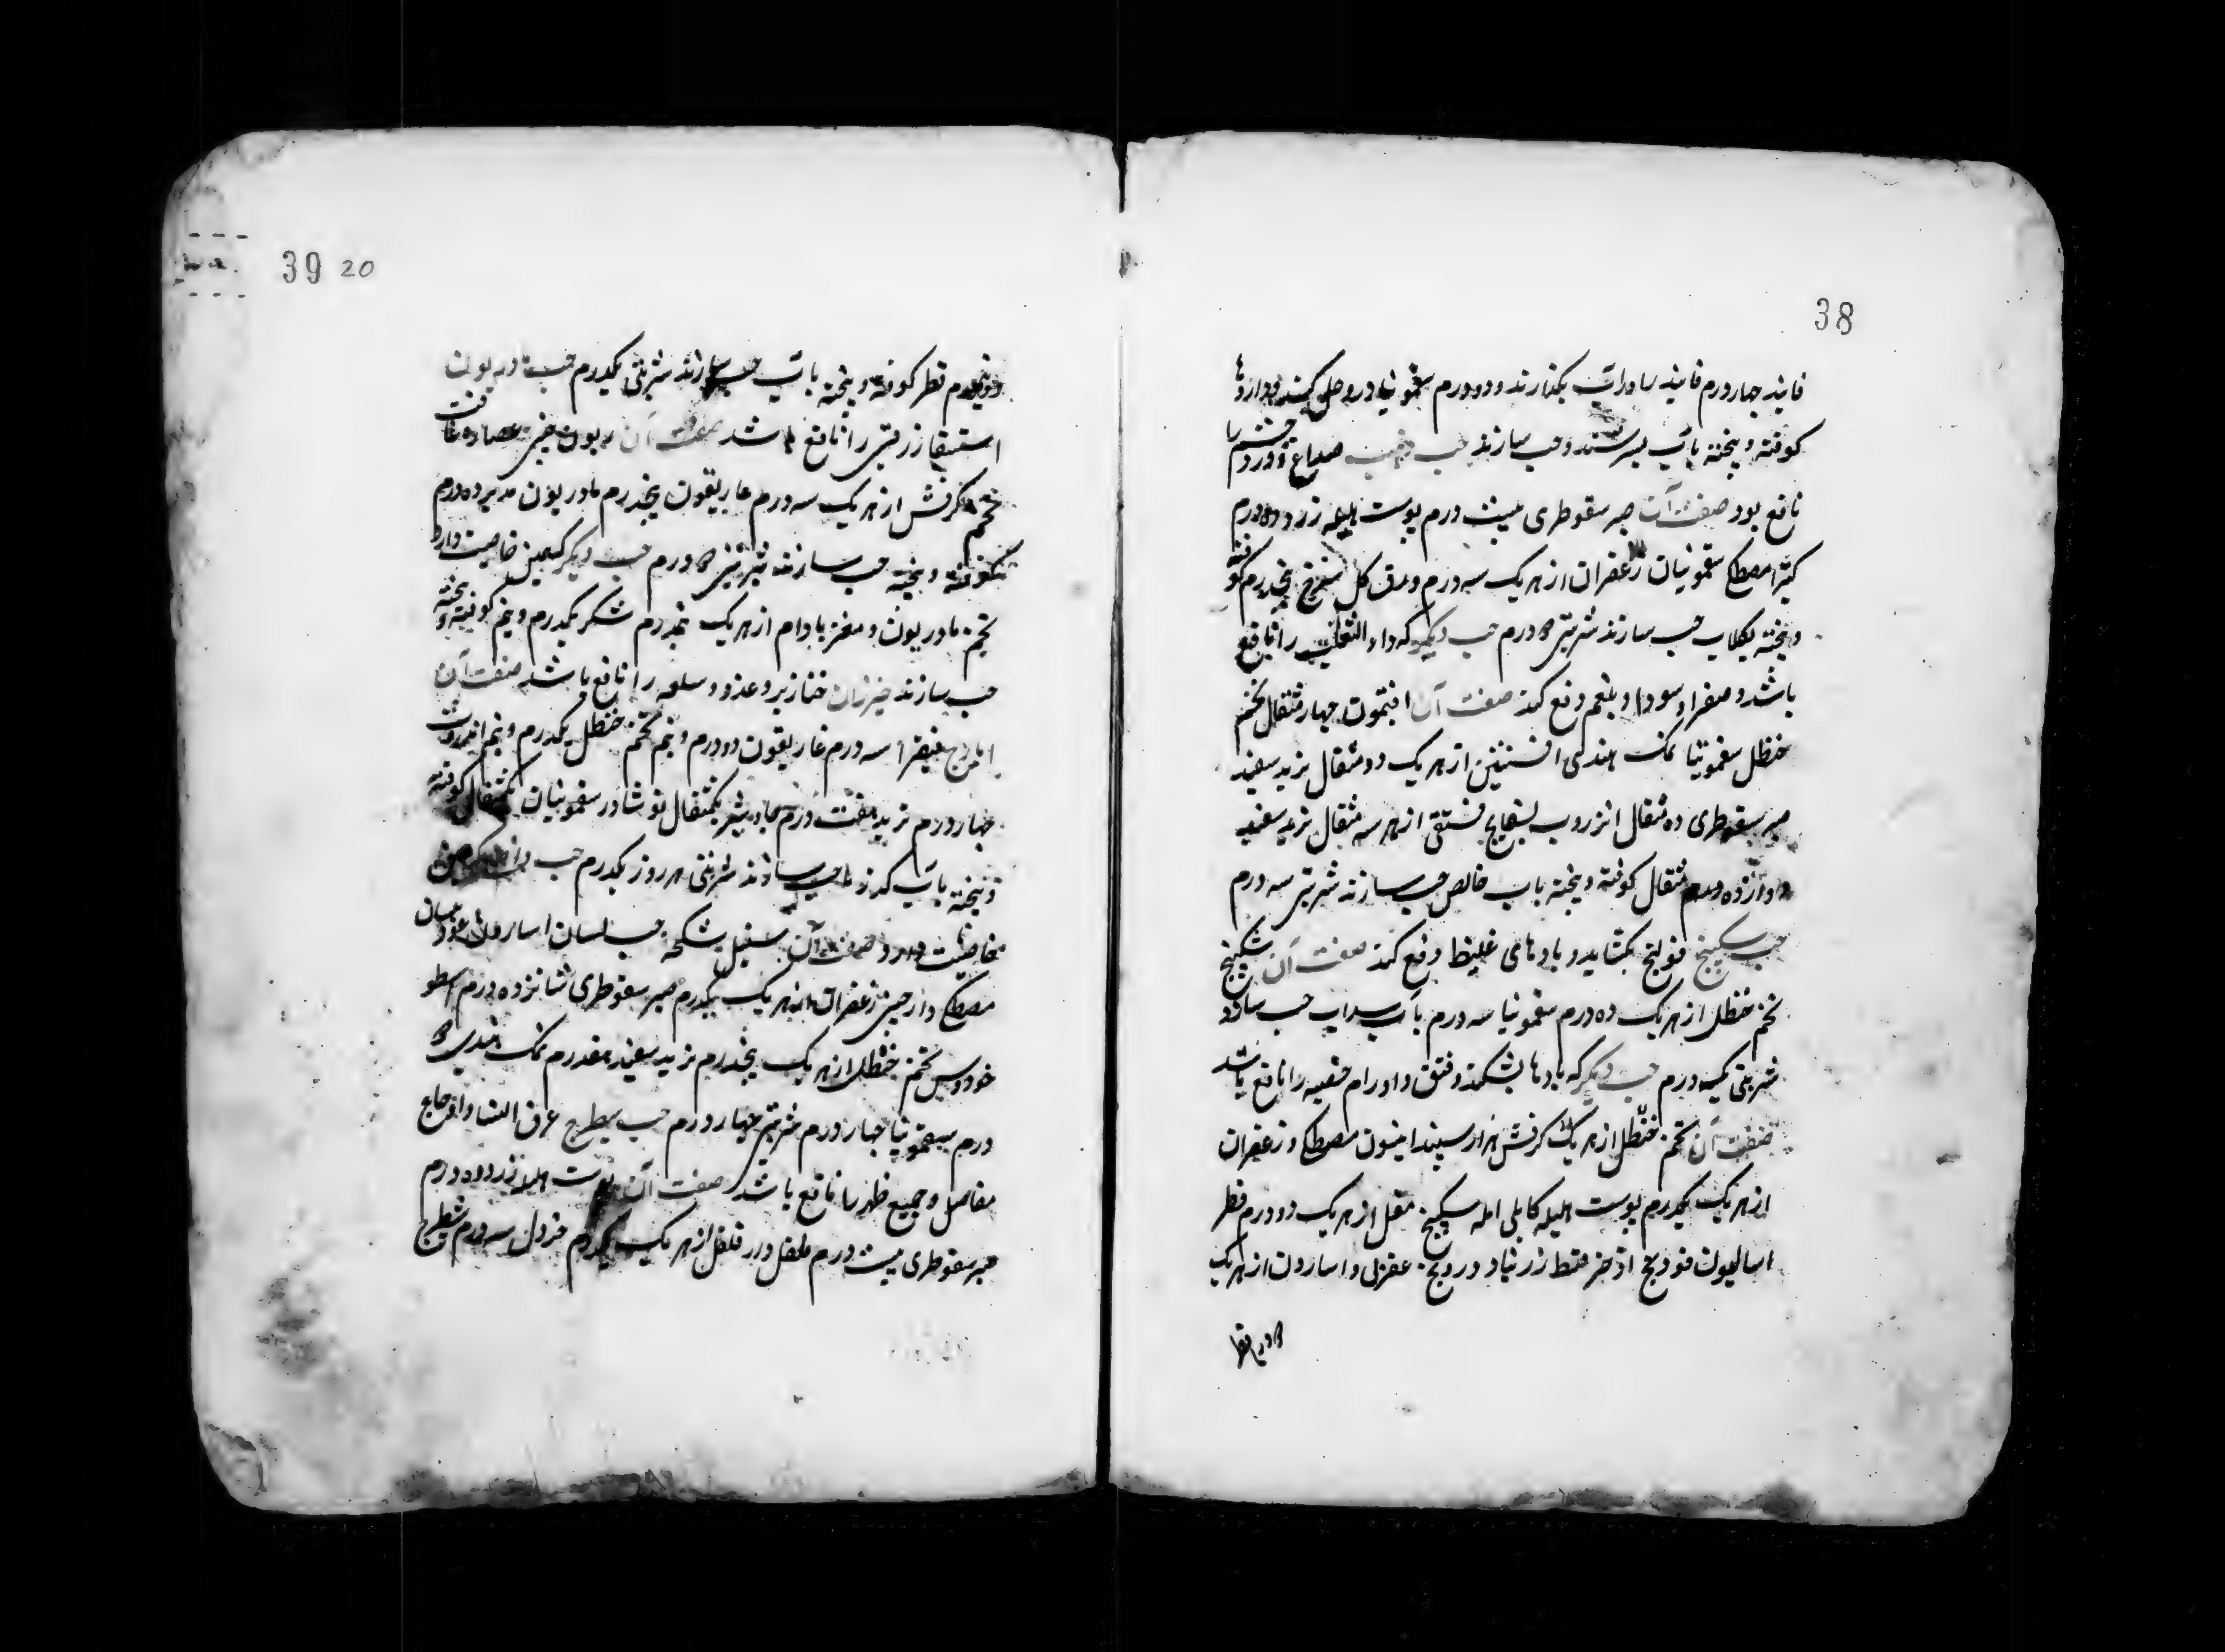 38
فانید چهار درم فانید را در آب بگذارند و دو درم سقمونیا در و حل کنند و داروها
کوفته و بیخته بآب بسرشند و حب سازند حب صداع و درد چشم را
نافع بود صفت آن صبر سقوطری بیست درم پوست هلیله زرد ده درم
کتیرا مصطکی سقمونیان زعفران از هریک سه درم ورق کل سرخ پنجدرم کوفته
و بیخته بکلاب حب سازند شربتی درم حب دیگر که داء الثعلب را نافع
باشد و صفرا و سودا و بلغم دفع کند صفت آن افتیمون چهار مثقال تخم
حنظل سقمونیا نمک هندی افسنتین از هریک دو مثقال تربد سفید
صبر سقوطری ده مثقال انزروب بسفایج فستقی از هر سه مثقال تربد سفید
دوازده درم مثقال کوفته و بیخته باب خالص حب سازند شربتی سه درم
حب سکبینج قولنج بکشاید و بادهای غلیظ دفع کند صفت آن سکبینج
تخم حنظل از هریک ده درم سقمونیا سه درم بآب سداب حب سازد
شربتی یکدرم حب دیگر که بادها بشکند و فتق و اورام خصیه را نافع باشد
صفت آن تخم حنظل از هریک کرفش هزار سپند انیسون مصطکی و زعفران
از هریک یکدرم پوست هلیله کابلی امله سکبینج مقل از هریک دو درم قطر
اسالیون فودنج اذخر قسط زرنباد درونج عقربی و اسارون از هریک
39 20
درم قطر کوفته و بیخته بآب حب سازند شربتی یکدرم حب مادریون
استسقا زرقی را نافع باشد صفت آن ریون چینی عصاره غافت
تخم کرفش از هریک سه درم غاریقون پنجدرم مادریون مدبر ده درم
کوفته و بیخته حب سازند شربتی درم حب دیگر که همین خاصیت دارد
تخم مادریون و مغز بادام از هریک نیمدرم شکر یکدرم و نیم کوفته و بیخته
حب سازند خیزران خنازیر و غدود و سلعه را نافع باشد صفت آن
ایارج فیقرا سه درم غاریقون دو درم و نیم تخم حنظل یکدرم و نیم انزروت
چهار درم تربد هفت درم جاوشیر یکمثقال نوشادر سقمونیان یکمثقال کوفته
و بیخته بآب کندنا حب سازند شربتی هر روز یکدرم حب
خاصیت دارد صفت آن سنبل حب لسان اسارون
مصطکی دارچینی زعفران از هریک یکدرم صبر سقوطری شانزده درم اسطو
خودوس تخم حنظل از هریک پنجدرم تربد سفید هفدرم نمک هندی
درم سقمونیا چهار درم شربتی چهار درم حب سیطرج عرق النسا و اوجاع
مفاصل و جمیع ظهر را نافع باشد صفت آن پوست هلیله زرد ده درم
صبر سقوطری بیست درم فلفل و دار فلفل از هریک یکدرم خردل سه درم شیطرج